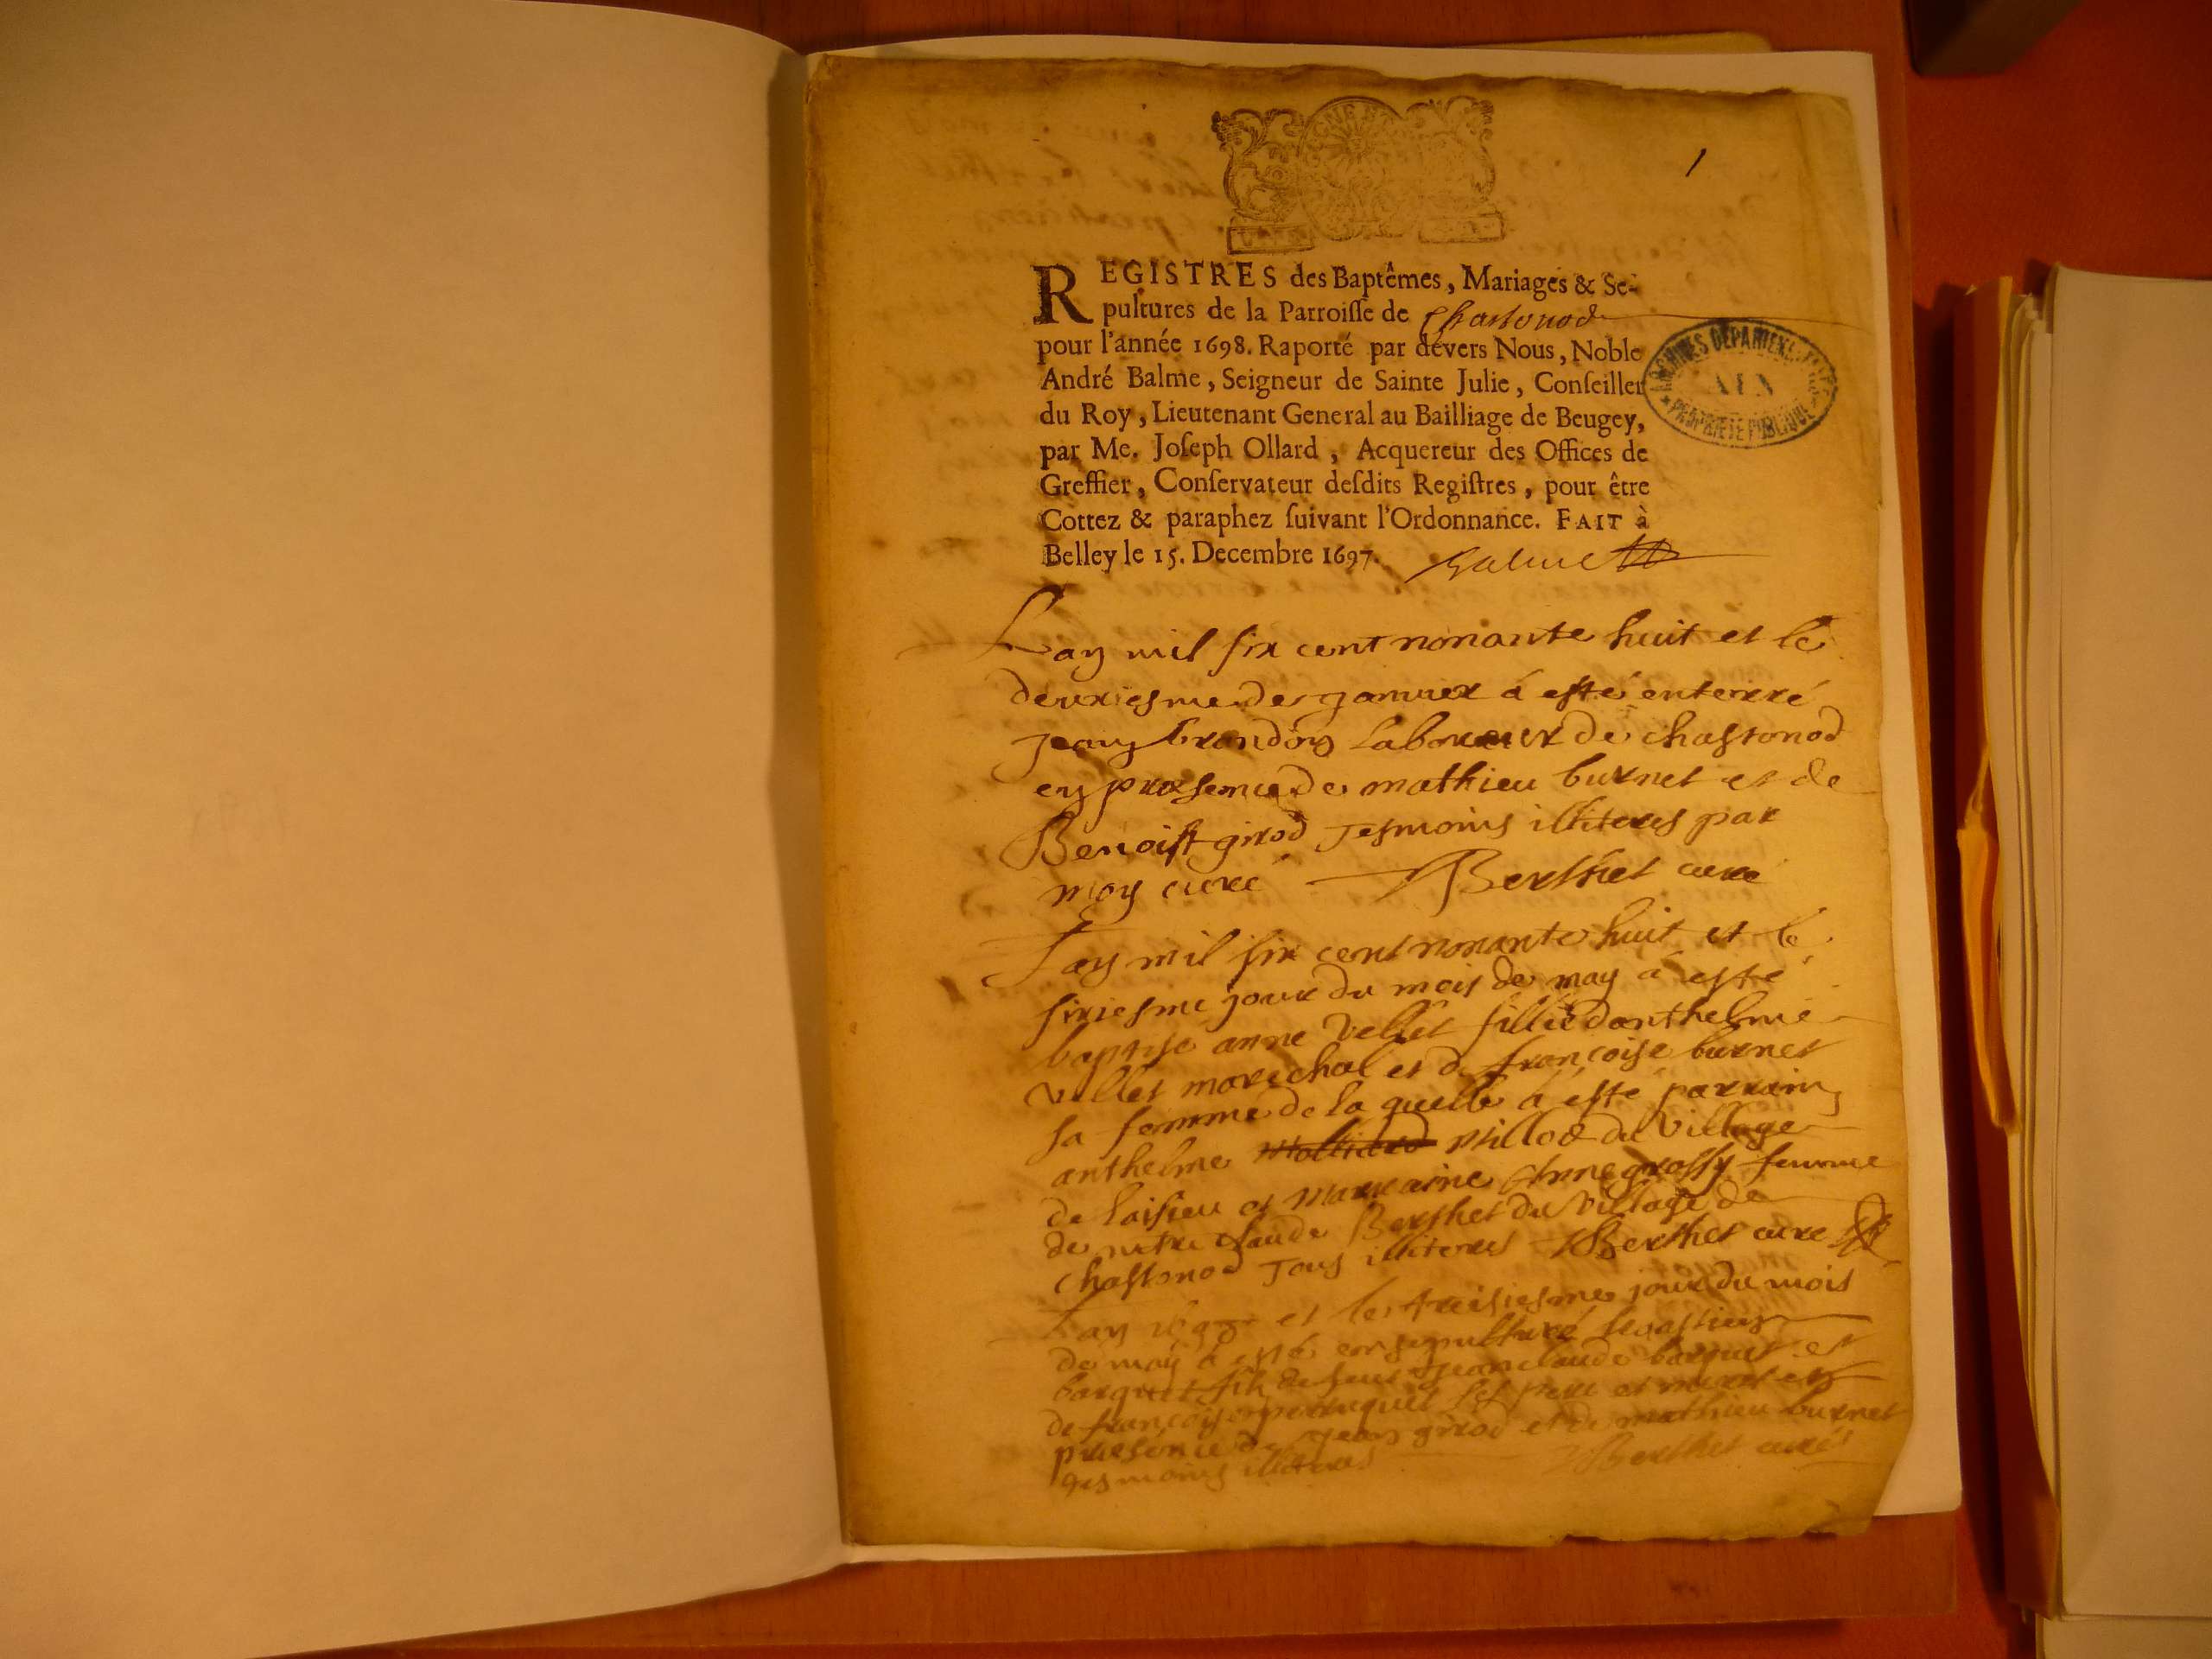 1
REGISTRES des Baptêmes, Mariages & Se-
pultures de la Parroisse de Chastonod
pour l'année 1698. Raporté par devers Nous, Noble
André Balme, Seigneur de Sainte Julie, Conseiller
du Roy, Lieutenant General au Bailliage de Beugey,
par Me. Joseph Ollard, Acquereur des Offices de
Greffier, Conservateur desdits Registres, pour être
Cottez & paraphez suivant l'Ordonnance. FAIT à
Belley le 15. Decembre 1697. Balme
ARCHIVES DEPARTEMENTALES
AIN
* PROPRIETE PUBLIQUE *
Lan mil six cent nonante huit et le
deuxiesme de janvier á esté enterré
jean brondon laboureur de chastonod
en presence de mathieu burnet et de
Benoist girod tesmoins illiteres par
moy curé Berthet curé
Lan mil six cent nonante huit et le
sixiesme jour du mois de may á esté
baptisé anne vellet fillie danthelme
vellet marechal et de francoise burnet
sa femme de la quelle á esté parrain
anthelme millod du village
de laisieu et marraine Anne grossy femme
de claude Berthet du village de
chastonod tous illiteres Berthet curé
Lan 1698 et le treisiesme jour du mois
de may á esté ensepulturé sebastien
barquet fils de feu jean claude barquet et
de francoise perruquet ses pere et mere en
presence de jean girod et de mathieu burnet
tesmoins illiteres Berthet curé